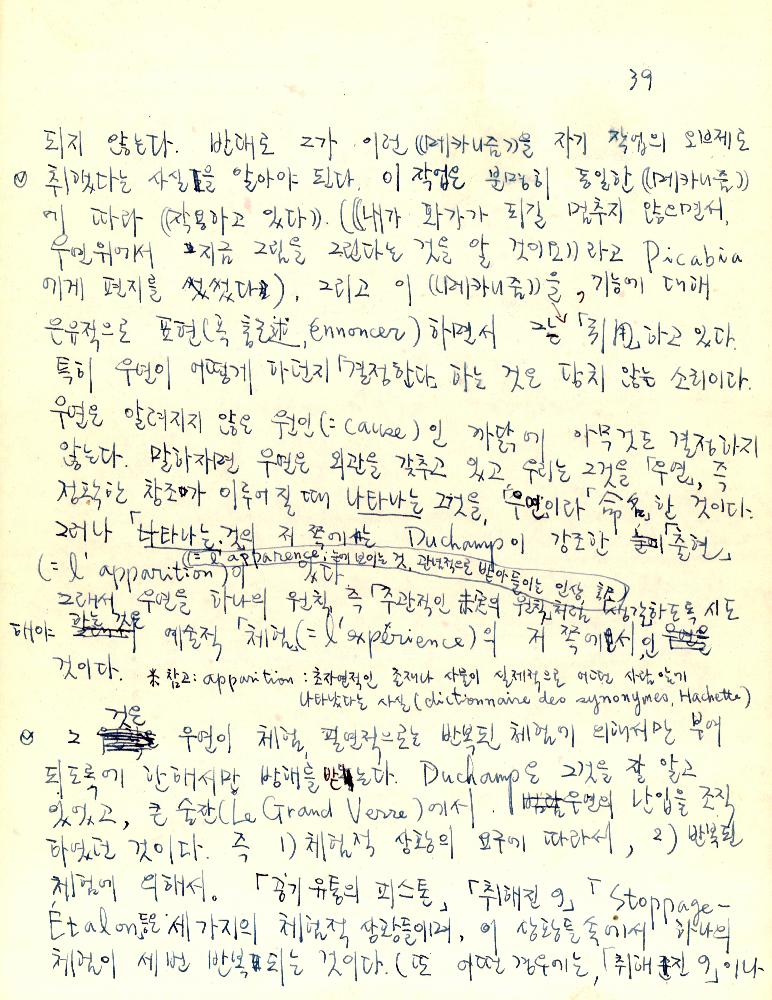 39
되지 않는다. 반대로 그가 이런 《메카니즘》을 자기 작업의 오브제로
취했다는 사실을 알아야 된다. 이 작업은 분명히 동일한 《메카니즘》
에 따라 《작용하고 있다》. (《내가 화가가 되길 멈추지 않으면서,
우연위에서 지금 그림을 그린다는 것을 알 것이오》라고 Picabia
에게 편지를 썼었다), 그리고 이 《메카니즘》을, 기능에 대해
은유적으로 표현(혹 記述, énnoncer) 하면서 그는 「引用」하고 있다.
특히 우연이 어떻게 하던지 「결정한다」 하는 것은 당치 않는 소리이다.
우연은 알려지지 않은 원인(= cause)인 까닭에 아무것도 결정하지
않는다. 말하자면 우연은 외관을 갖추고 있고 우리는 그것을 「우연」, 즉
정독한 창조가 이루어질 때 나타나는 그것을, 「우연」이라 「命名」한 것이다.
그러나 「나타나는」 것의 저 쪽에는 Duchamp이 강조한 「출현」
(= l'apparence; 눈에 보이는 것, 관념적으로 받아들이는 인상,
(= l'apparition)이 있다
그래서 우연을 하나의 원칙, 즉 「주관적인 未定의 원칙」처럼 생각하도록 시도
해야 할 것은 예술적 「체험」(= l'expérience)의 저 쪽에서 인
것이다. ※ 참고: apparition : 초자연적인 존재나 사물이 실제적으로 어떤 사람 앞에
나타났다는 사실 (dictionnaire des synonymes, Hachette)
그 것은 우연이 체험, 필연적으로는 반복된 체험에 의해서만 부여
되도록에 한해서만 방대를 받는다. Duchamp은 그것을 잘 알고
있었고, 큰 술잔(Le Grand Verre)에서 우연의 난입을 조직
하였던 것이다. 즉 1) 체험적 상황의 요구에 따라서, 2) 반복된
체험에 의해서. 「공기 유통의 피스톤」, 「취해진 9」 「Stoppage-
Étalon」등은 세 가지의 체험적 상황들이며, 이 상황들속에서 하나의
체험이 세번 반복되는 것이다. (또 어떤 경우에는, 「취해진 9」이나